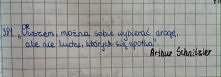 381. „Owszem, można sobie wybierać drogę,
ale nie ludzi, których się spotka"
Arthur Schnitzler